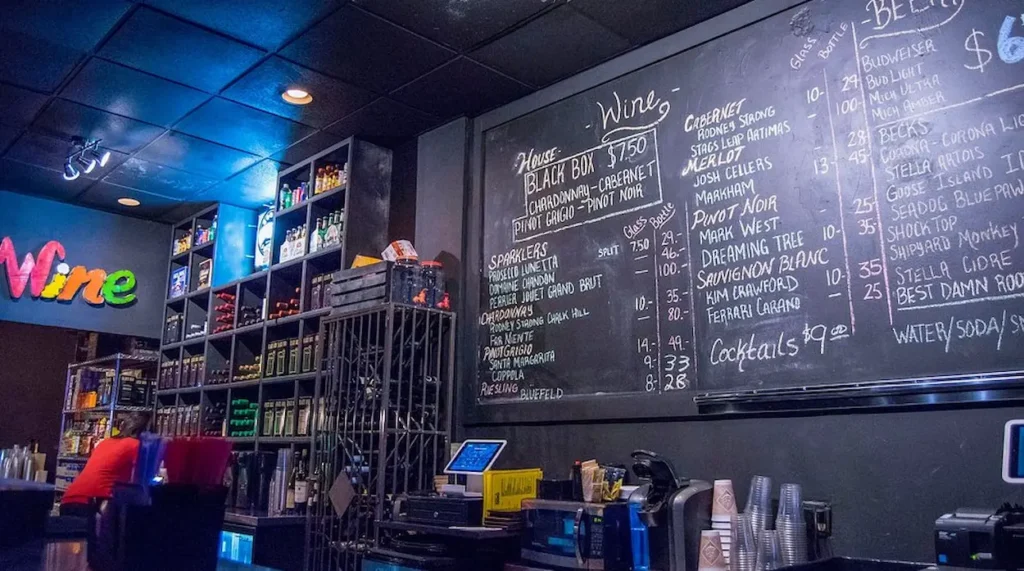 Wine
- Wine -
House
BLACK BOX $7.50
CHARDONNAY - CABERNET
PINOT GRIGIO - PINOT NOIR
GLASS BOTTLE
SPARKLERS
PROSECCO LUNETTA SPLIT 7.50 29.-
DOMAINE CHANDON 46.-
PERRIER JOUET GRAND BRUT 100.-
CHARDONNAY
RODNEY STRONG CHALK HILL 10.- 35.-
FAR NIENTE 80.-
PINOT GRIGIO
SANTA MARGARITA 14.- 49.-
COPPOLA 9.- 33
RIESLING BLUEFELD 8.- 28
GLASS BOTTLE
CABERNET
RODNEY STRONG 10-
STAGS LEAP ARTIMAS 100-
MERLOT
JOSH CELLERS
MARKHAM 13- 45-
PINOT NOIR
MARK WEST
DREAMING TREE 10- 35-
SAUVIGNON BLANC
KIM CRAWFORD 10- 35
FERRARI CARANO 25
Cocktails $9.00
BEER
BUDWEISER
BUD LIGHT
MICH ULTRA
MICH AMBER
$6
BECKS
CORONA - CORONA LIG
STELLA ARTOIS
GOOSE ISLAND I
SEADOG BLUE PAW
SHOCK TOP
SHIPYARD MONKEY
STELLA CIDRE
BEST DAMN ROO
WATER/SODA/S